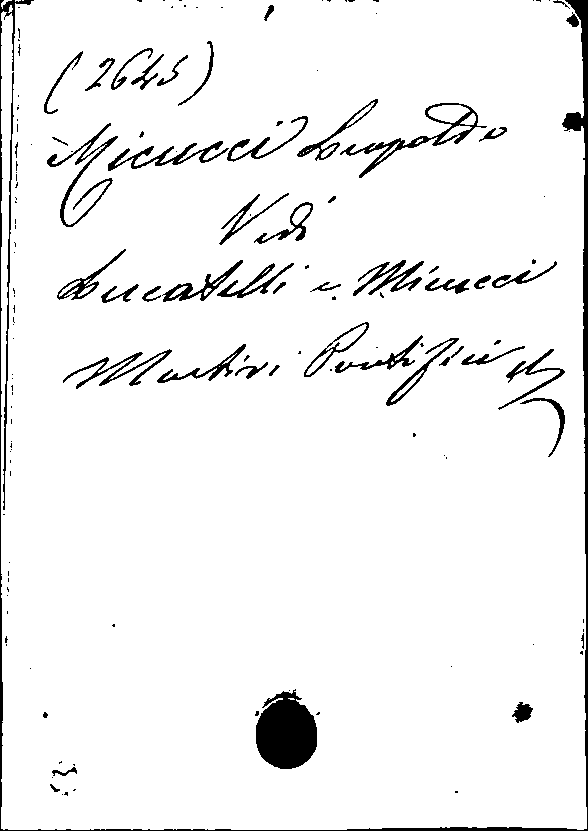 (2645)
Micucci Leopoldo
Vedi
Lucatelli e Micucci
Martiri Pontificii